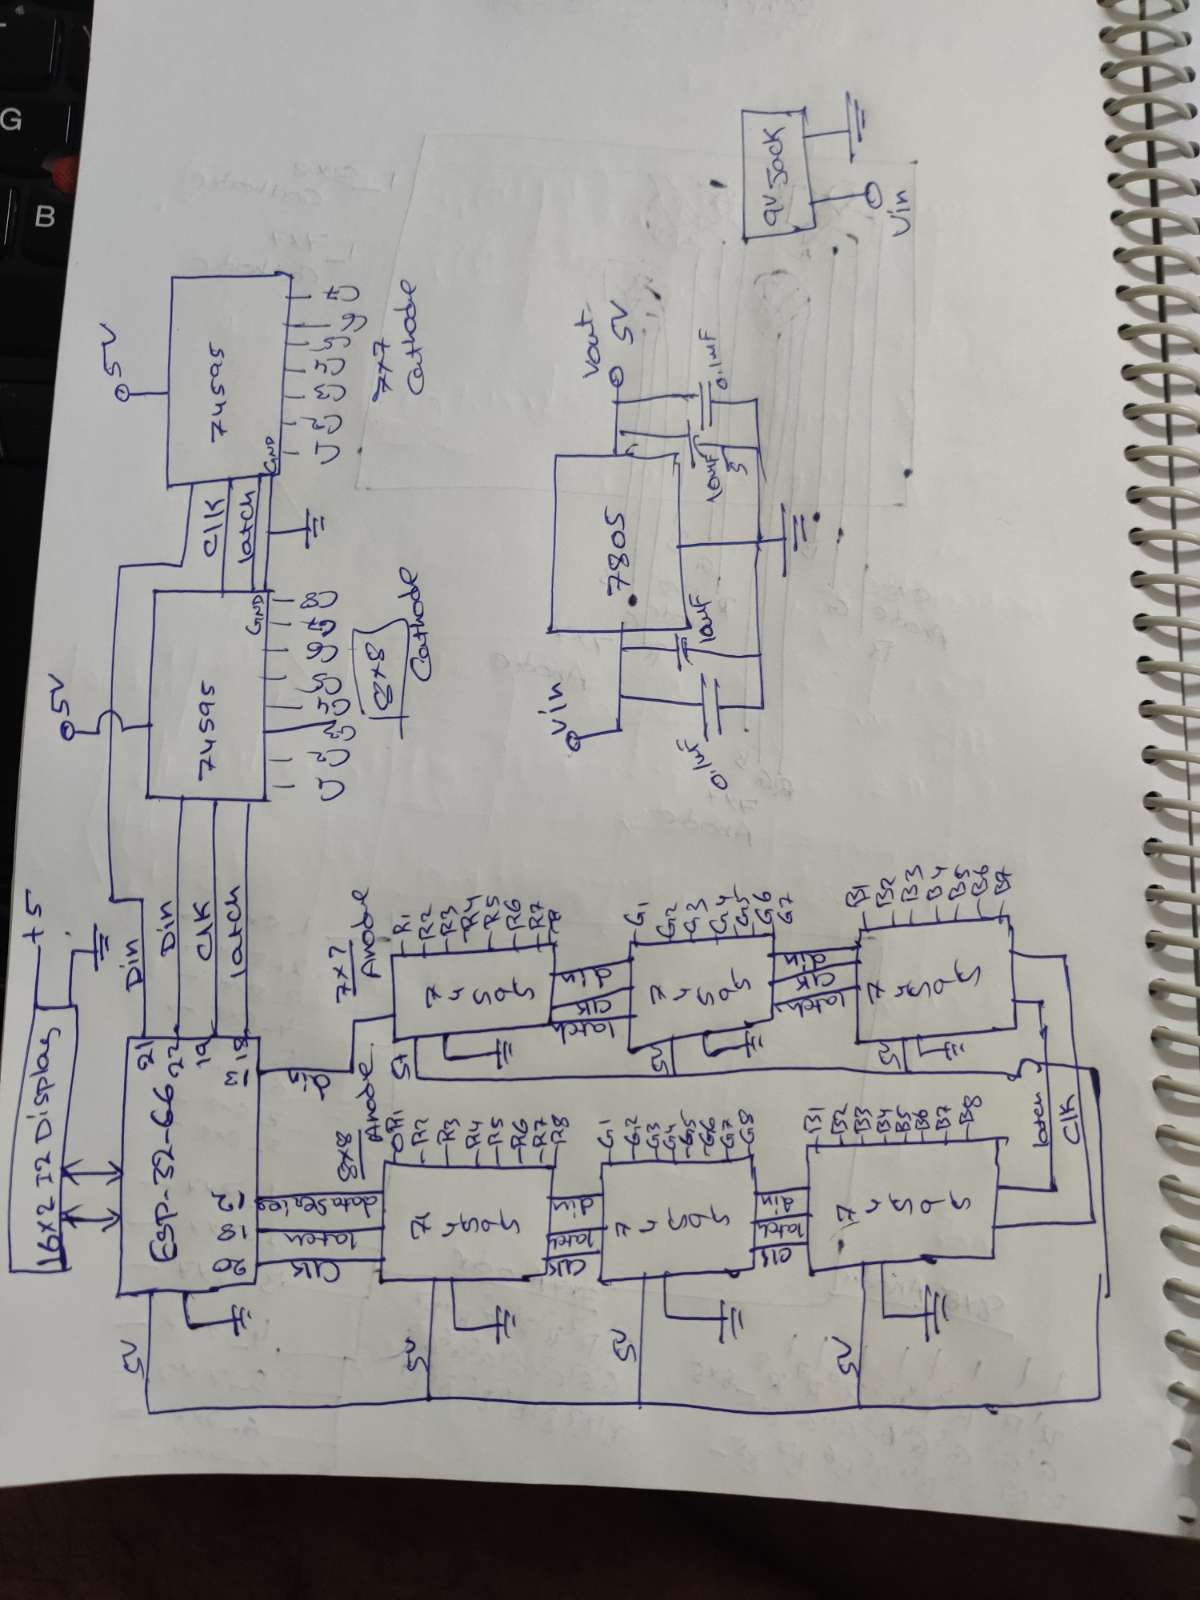 16x2 I2 Display
+5
ESP-32-66
21
22
19
18
13
12
18
20
Din
Din
CLK
latch
5V
74595
GND
C1 C2 C3 C4 C5 C6 C7 C8
8x8
Cathode
CLK
latch
5V
74595
GND
C1 C2 C3 C4 C5 C6 C7
7x7
Cathode
5V
8x8
Anode
dataseries
latch
CLK
5V
R1
R2
R3
R4
R5
R6
R7
R8
din
latch
CLK
5V
G1
G2
G3
G4
G5
G6
G7
G8
din
latch
CLK
5V
B1
B2
B3
B4
B5
B6
B7
B8
latch
CLK
7x7
Anode
R1
R2
R3
R4
R5
R6
R7
din
CLK
latch
5V
G1
G2
G3
G4
G5
G6
G7
din
CLK
latch
5V
B1
B2
B3
B4
B5
B6
B7
Vin
7805
Vout
5V
0.1µF
10µF
10µF
0.1µF
9V Jack
Vin
G
B